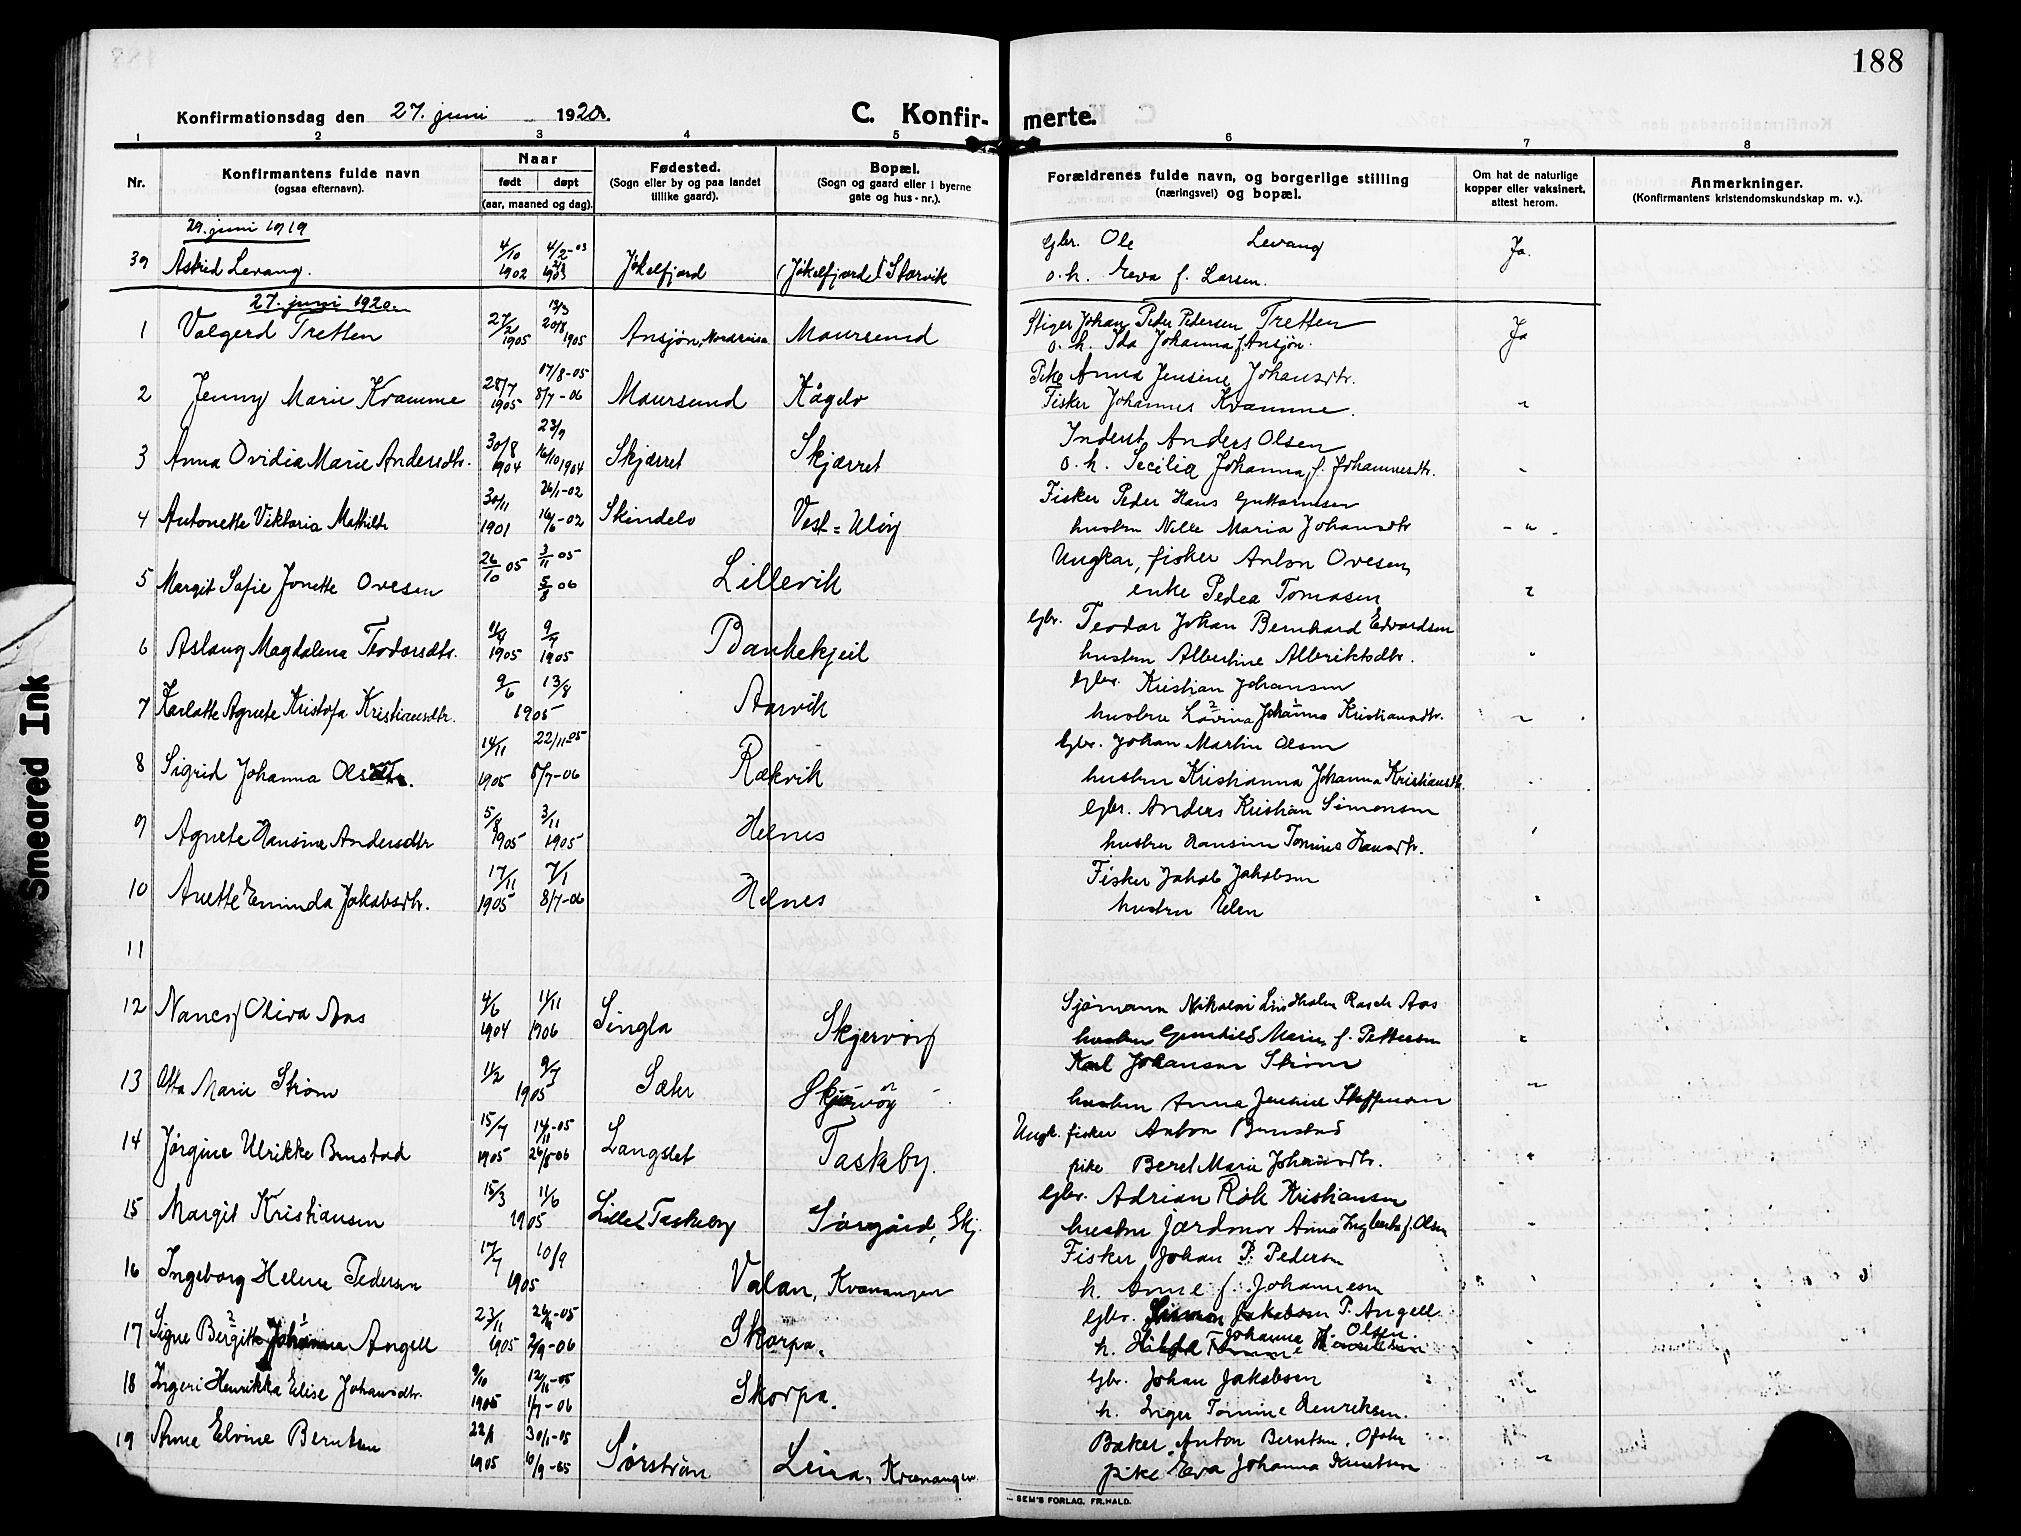 188
Konfirmationsdag den 27. juni 1920.
C. Konfir-
merte.
1 2 3 4 5 6 7 8
Nr.
Konfirmantens fulde navn
(ogsaa efternavn).
Naar
født døpt
(aar, maaned og dag).
Fødested.
(Sogn eller by og paa landet
tillike gaard).
Bopæl.
(Sogn og gaard eller i byerne
gate og hus-nr.).
Forældrenes fulde navn, og borgerlige stilling
(næringsvei) og bopæl.
Om hat de naturlige
kopper eller vaksinert,
attest herom.
Anmerkninger.
(Konfirmantens kristendomskundskap m. v.).
29. juni 1919
39 Astrid Levang. 4/10 1902 4/2-03 1903 Jökelfjord (Jökelfjord) Storvik
Gbr. Ole Levang
o. h. Eva f. Larsen.
Ja.
27. juni 1920.
1 Valgerd Tretten 27/2 1905 13/3 20/8 1905 Ansjön, Nordreisa Maursund
Stiger Johan Peder Pedersen Tretten
o. h. Ida Johanna f. Ansjön.
Ja
2 Jenny Marie Kvamme 28/7 1905 17/8-05 8/7-06 Maursund Kågelv
Pike Anna Jensine Johansdtr.
Fisker Johannes Kvamme.
"
3 Anna Ovidia Marie Andersdtr. 30/8 1904 23/9 16/10 1904 Skjærret Skjærret
Inderst Anders Olsen
o. h. Secilia Johanna f. Johannesdtr.
"
4 Antonette Viktoria Mathildr 30/11 1901 26/1-02 16/6-02 Skindelv Vest=Ulöy
Fisker Peder Hans Guttormsen
hustru Nille Maria Johansdtr
- " -
5 Margit Sofie Jonette Ovesen 26/10 05 3/11 05 5/8 06 Lillevik
Ungkar, fisker Anton Ovesen,
enke Pedea Tomasen
"
6 Aslaug Magdalena Teodorsdtr. 11/4 1905 9/7 1905 Bankekjeil
Gbr. Teodor Johan Bernhard Edvardsen
hustru Albertine Albriktsdtr.
"
7 Karlotte Agnete Kristofa Kristiansdtr. 9/6 13/8 1905 Aarvik
Gbr. Kristian Johansen
hustru Lovina 2 Johanna 1 Kristiansdtr.
"
8 Sigrid Johanna Olsdtr. 14/11 1905 22/11-05 8/7-06 Rækvik
Gbr. Johan Martin Olsen
hustru Kristianna Johanna Kristiansdtr.
"
9 Agnete Hansine Andersdtr 5/8 1905 3/11 1905 Helnes
Gbr. Anders Kristian Simonsen
hustru Hansine Tomine Hansdtr.
"
10 Anette Eminda Jakobsdtr. 17/11 1905 7/1 8/7-06 Helnes
Fisker Jakob Jakobsen
hustru Elen
"
11
12 Nancy Oliva Aas 4/6 1904 11/11 1906 Singla Skjervöy
Sjömann Nikolai Lindholm Rasch Aas
hustru Gunhild Marie f. Pettersen
"
13 Otta Marie Ström 11/2 9/7 1905 Sæter Skjervöy
Karl Johansen Ström
hustru Anna Jensine Steffensen
"
14 Jörgine Ulrikke Bunstad 15/7 1905 14/11-05 26/8-06 Langslet Taskeby.
Ungk. fisker Anton Bunstad
pike Beret Marie Johansdtr.
"
15 Margit Kristiansen 15/3 11/6 1905 Lille Taskeby Sörgård, Skj.
Gbr. Adrian Röh Kristiansen
hustru jordmor Anna Ingberta f. Olsen
"
16 Ingeborg Helene Pedersen 17/7 10/9 1905 Valan, Kvænangen
Fisker Johan P. Pedersen
h. Anne f. Johannesen
"
17 Signe Bergitte 2 Johanna 1 Angell 23/11 1905 26/11-05 2/9-06 Skorpa.
Gbr. Simon Jakobsen P. Angell
h. Hilda Johanna f. Olsen.
"
18 Ingeri Henrikka Elise Johansdtr. 9/10 1905 12/11-05 1/7-06 Skorpa.
Gbr. Johan Jakobsen
h. Inger Tomine Henriksen.
"
19 Anna Elvine Berntsen 22/1 1905 30/1-05 10/9-05 Sörströn Leira, Kvænangen.
Baker Anton Berntsen, Ofoten
pike Eva Johanna Knutsen
"
SEM'S FORLAG, FR.HALD.
Smeared Ink